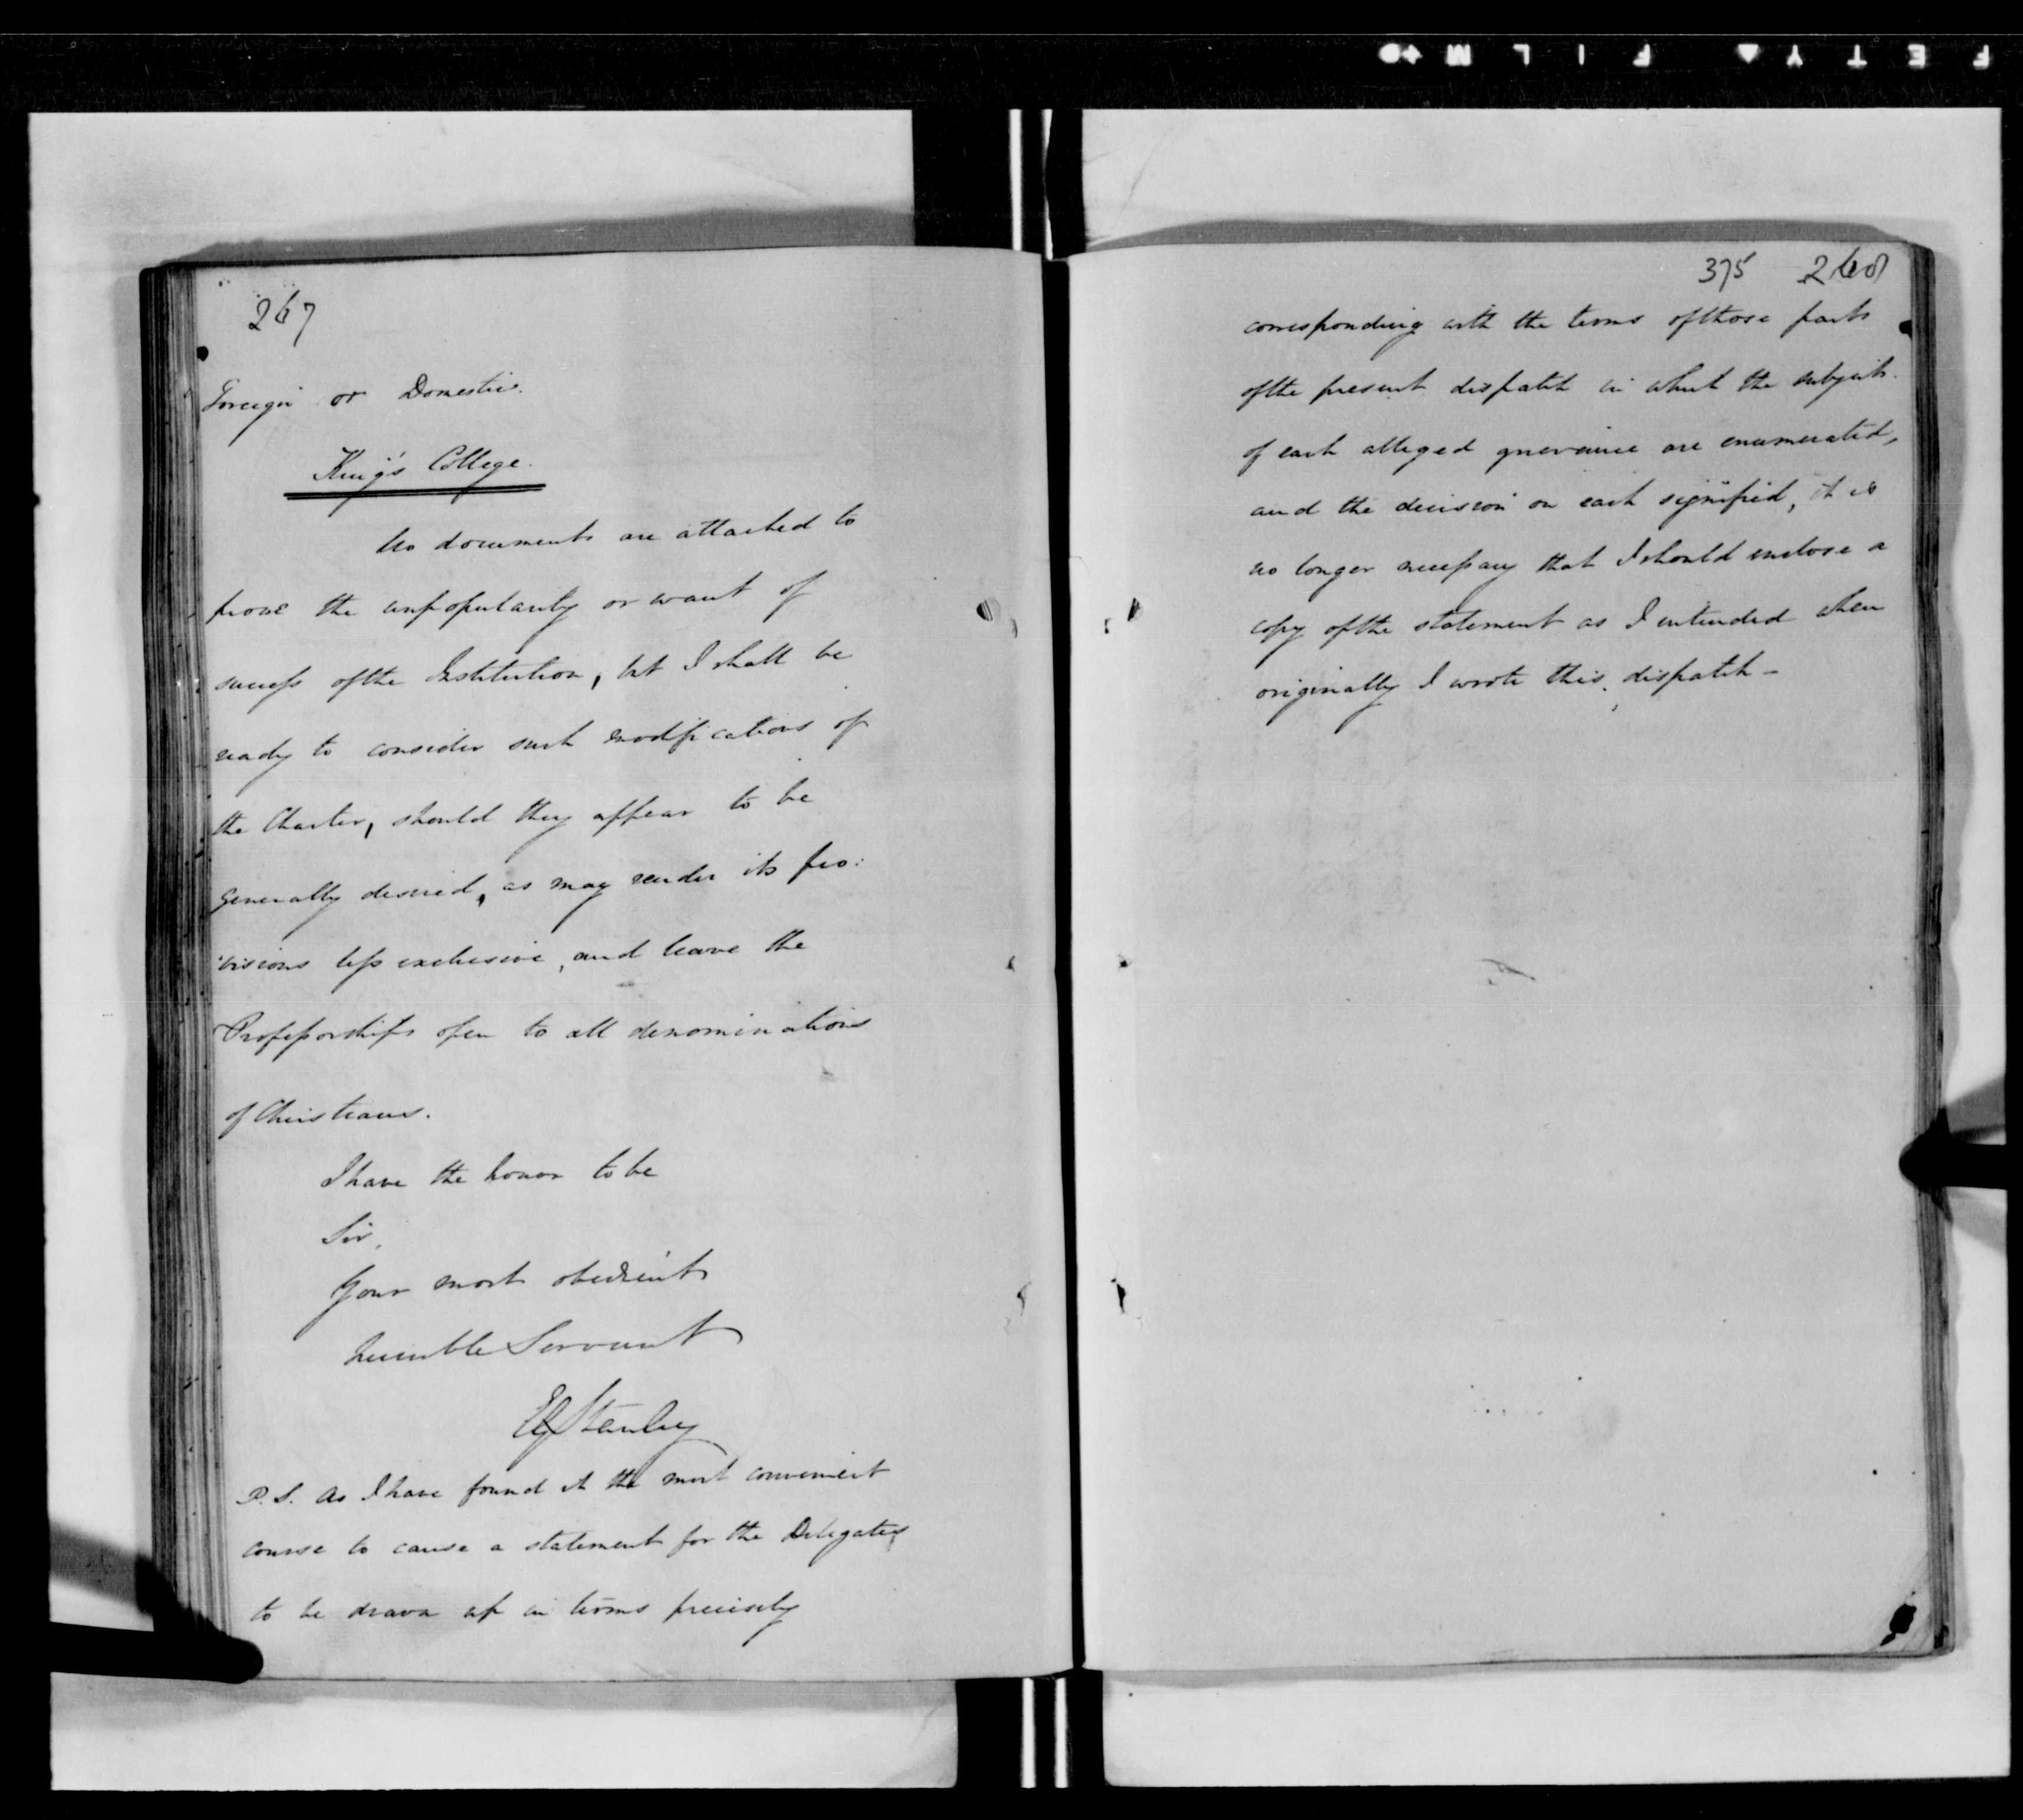 SAFETY FILM
267
Foreign or Domestic.
King's College.
No documents are attached to
prove the unpopularity or want of
success of the Institution, but I shall be
ready to consider such modifications of
the Charter, should they appear to be
generally desired, as may render its pro:
:visions less exclusive, and leave the
Professorships open to all denominations
of Christians.
I have the honor to be
Sir,
Your most obedient
humble Servant
EGStanley
P.S. As I have found it the most convenient
course to cause a statement for the Delegates
to be drawn up in terms precisely
375 268
corresponding with the terms of those parts
of the present dispatch in which the subjects
of each alleged grievance are enumerated,
and the decision on each signified, it is
no longer necessary that I should enclose a
copy of the statement as I intended when
originally I wrote this dispatch -